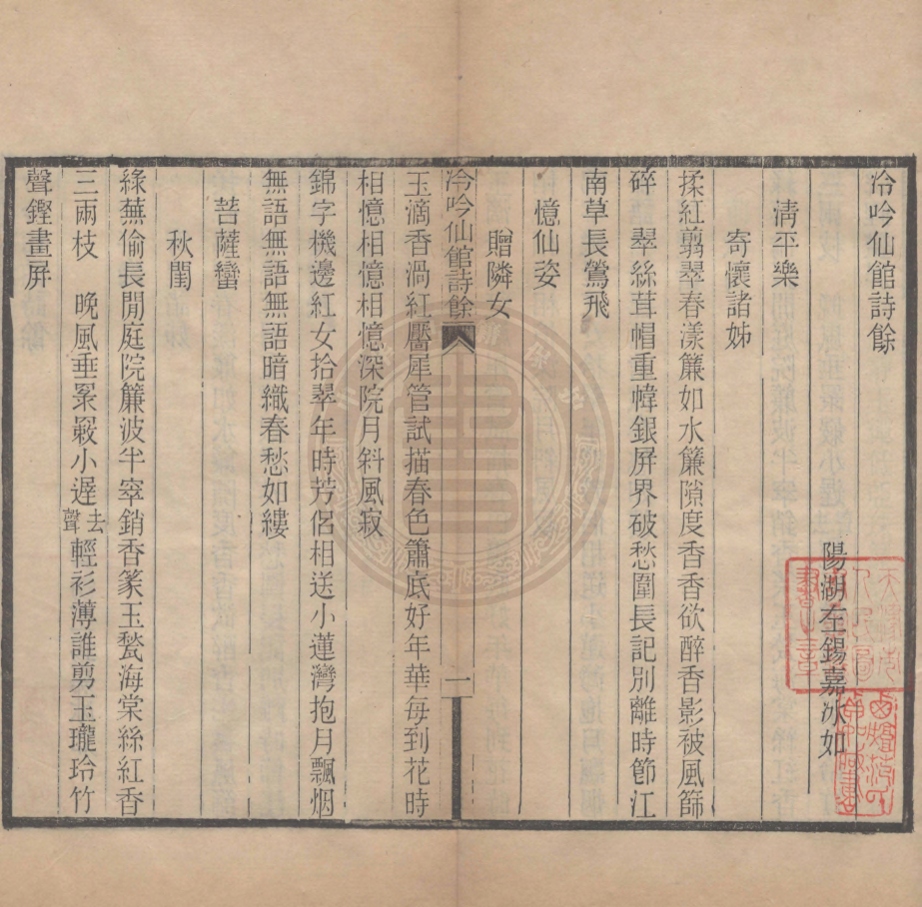 冷吟仙館詩餘
陽湖左錫嘉冰如
清平樂
寄懷諸姊
揉紅翦翠春漾簾如水簾隙度香香欲醉香影被風篩
碎　翠絲茸帽重幃銀屏界破愁圍長記別離時節江
南草長鶯飛
憶仙姿
贈隣女
玉滴香渦紅靨犀管試描春色簫底好年華每到花時
相憶相憶相憶深院月斜風寂
冷吟仙館詩餘
一
錦字機邊紅女拾翠年時芳侶相送小蓮灣抱月飄烟
無語無語無語暗織春愁如縷
菩薩蠻
秋閨
綠蕪偷長閒庭院簾波半窣銷香篆玉甃海棠絲紅香
三兩枝　晚風垂罘罳小遲去聲輕衫薄誰剪玉瓏玲竹
聲鏗畫屏